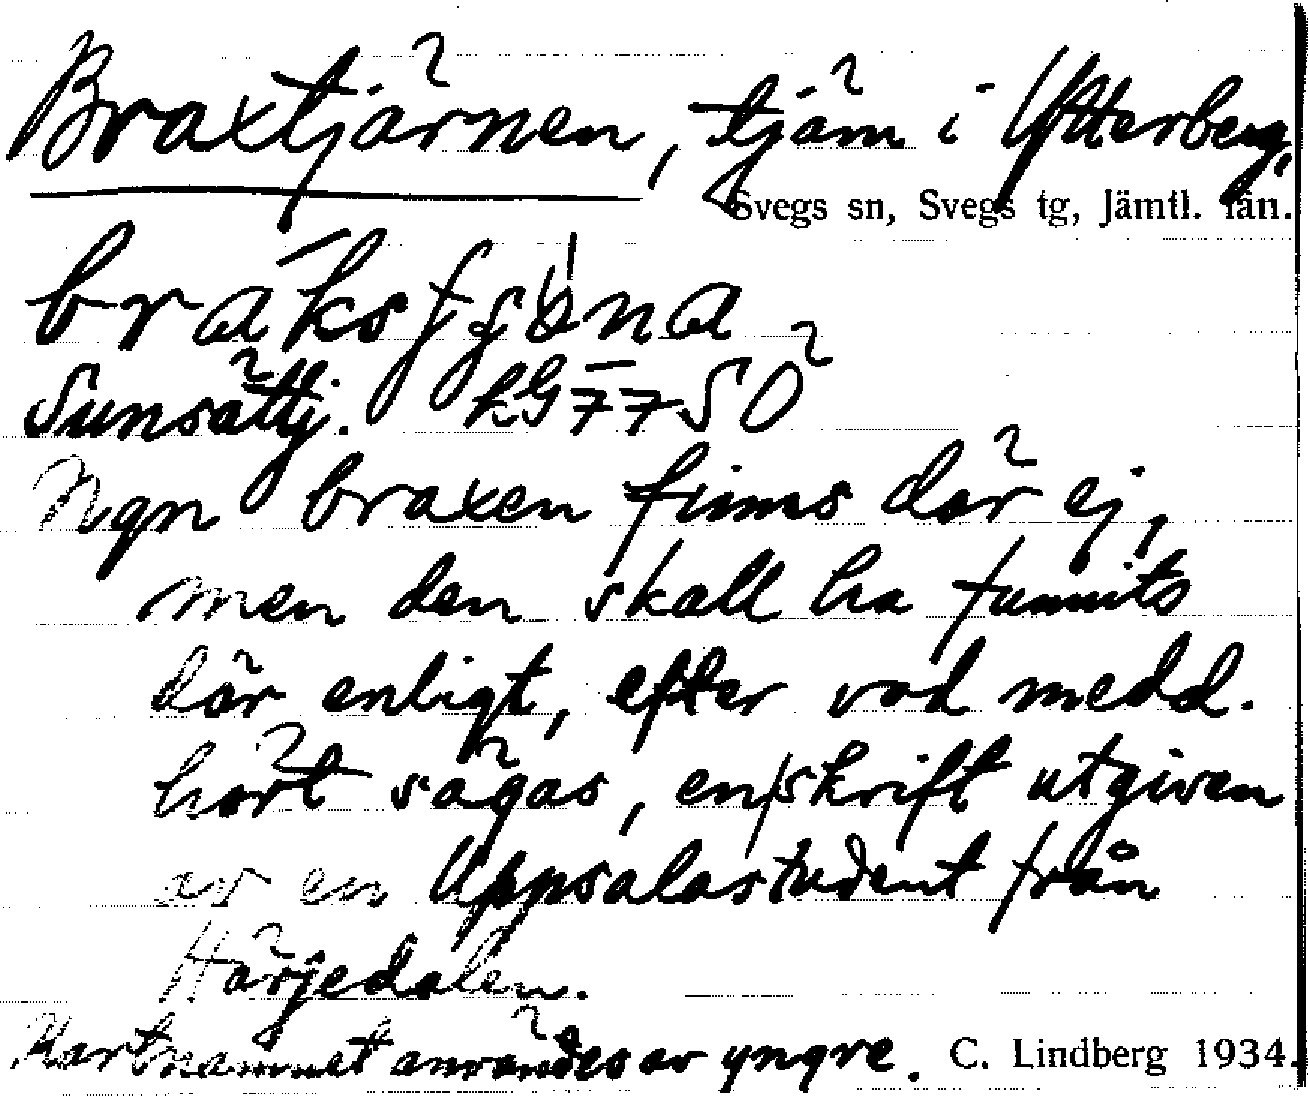 Braxtjärnen, tjärn i Ytterberg,
Svegs sn, Svegs tg, Jämtl. län.
Sunsättj. kG 77 SO
Ngn braxen finns där ej,
men den skall ha funnits
där enligt, efter vad medd.
hört sägas, en skrift utgiven
av en Uppsalastudent från
Härjedalen.
Kartnamnet användes av yngre. C. Lindberg 1934.